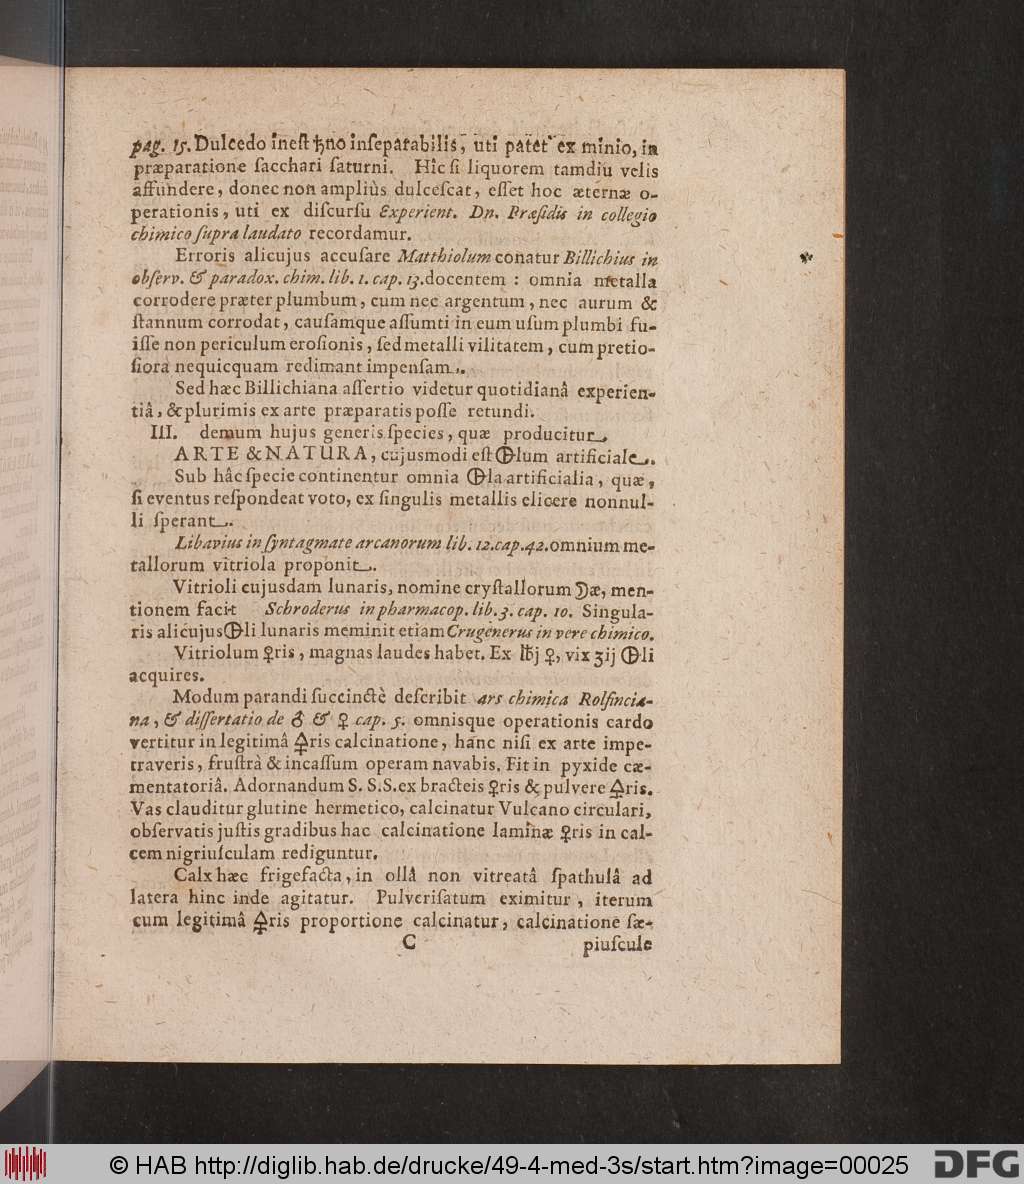 pag. 15. Dulcedo ineſt ♄no inſeparabilis, uti patet ex minio, in
præparatione ſacchari ſaturni. Hîc ſi liquorem tamdiu velis
affundere, donec non ampliùs dulceſcat, eſſet hoc æternæ o-
perationis, uti ex diſcurſu Experient. Dn. Præſidis in collegio
chimico ſupra laudato recordamur.
Erroris alicujus accuſare Matthiolum conatur Billichius in
obſerv. & paradox. chim. lib. 1. cap. 13. docentem : omnia metalla
corrodere præter plumbum, cum nec argentum, nec aurum &
ſtannum corrodat, cauſamque aſſumti in eum uſum plumbi fu-
iſſe non periculum eroſionis, ſed metalli vilitatem, cum pretio-
ſiora nequicquam redimant impenſam.
Sed hæc Billichiana aſſertio videtur quotidianâ experien-
tiâ, & plurimis ex arte præparatis poſſe retundi.
III. demum hujus generis ſpecies, quæ producitur
ARTE & NATURA, cujusmodi eſt 🜖lum artificiale.
Sub hâc ſpecie continentur omnia 🜖la artificialia, quæ,
ſi eventus reſpondeat voto, ex ſingulis metallis elicere nonnul-
li ſperant.
Libavius in ſyntagmate arcanorum lib. 12. cap. 42. omnium me-
tallorum vitriola proponit.
Vitrioli cujusdam lunaris, nomine cryſtallorum ☽æ, men-
tionem facit Schroderus in pharmacop. lib. 3. cap. 10. Singula-
ris alicujus 🜖li lunaris meminit etiam Crugenerus in vere chimico.
Vitriolum ♀ris, magnas laudes habet. Ex ℔j ♀, vix ʒij 🜖li
acquires.
Modum parandi ſuccinctè deſcribit ars chimica Rolfincia-
na, & diſſertatio de ♂ & ♀ cap. 5. omnisque operationis cardo
vertitur in legitimâ 🜍ris calcinatione, hanc niſi ex arte impe-
traveris, fruſtrà & incaſſum operam navabis. Fit in pyxide cæ-
mentatoriâ. Adornandum S. S. S. ex bracteis ♀ris & pulvere 🜍ris.
Vas clauditur glutine hermetico, calcinatur Vulcano circulari,
obſervatis juſtis gradibus hac calcinatione laminæ ♀ris in cal-
cem nigriuſculam rediguntur.
Calx hæc frigefacta, in ollâ non vitreatâ ſpathulâ ad
latera hinc inde agitatur. Pulveriſatum eximitur, iterum
cum legitimâ 🜍ris proportione calcinatur, calcinatione ſæ-
C piuſcule
© HAB http://diglib.hab.de/drucke/49-4-med-3s/start.htm?image=00025
DFG